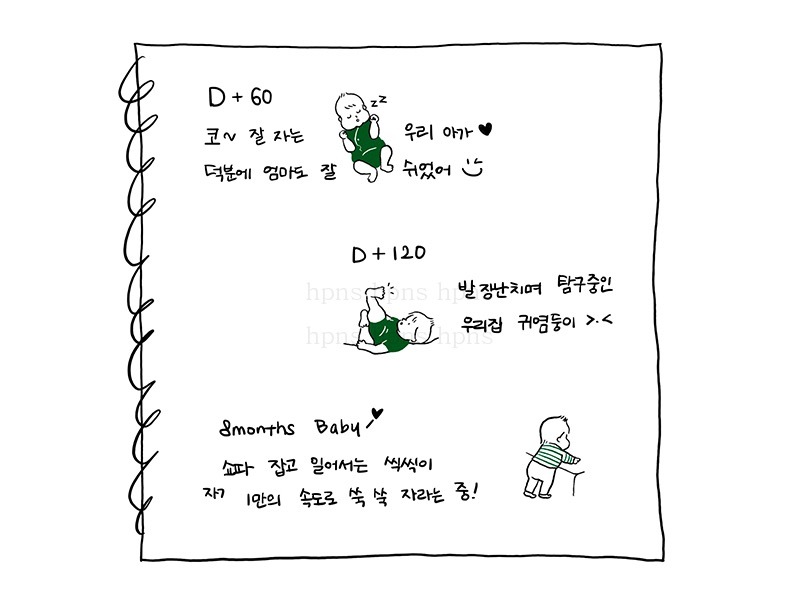 D + 60
코~ 잘 자는 우리 아가 ♥
덕분에 엄마도 잘 쉬었어
zz
D + 120
발 장난치며 탐구중인
우리집 귀염둥이 >.<
hpns hpns hpns
hpns hpns hpns
8months Baby
쇼파 잡고 일어서는 씩씩이
자기만의 속도로 쑥 쑥 자라는 중!